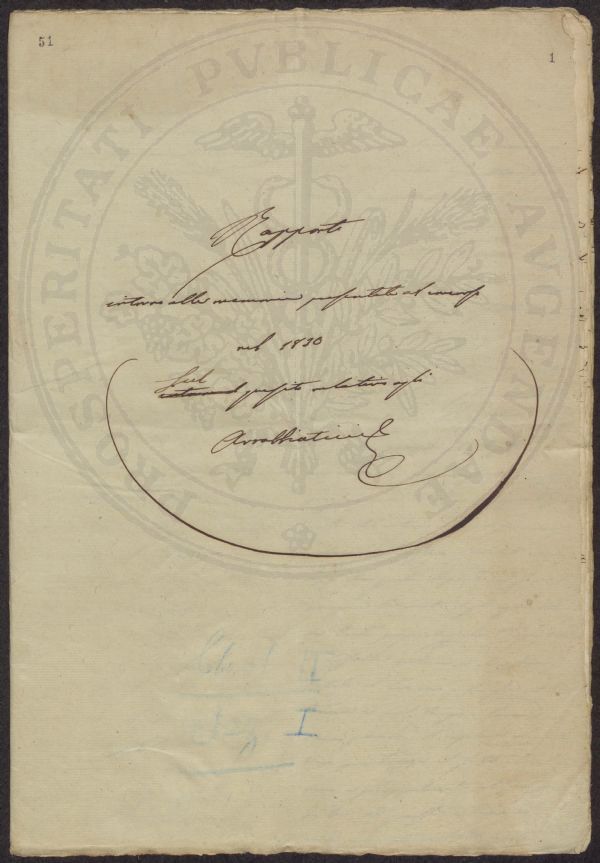 51
1
PROSPERITATI PVBLICAE AVGENDAE
Rapporto
intorno alle memorie presentate al concorso
nel 1830
Sul
quesito relativo agli
Arrabbiaticci
I
I